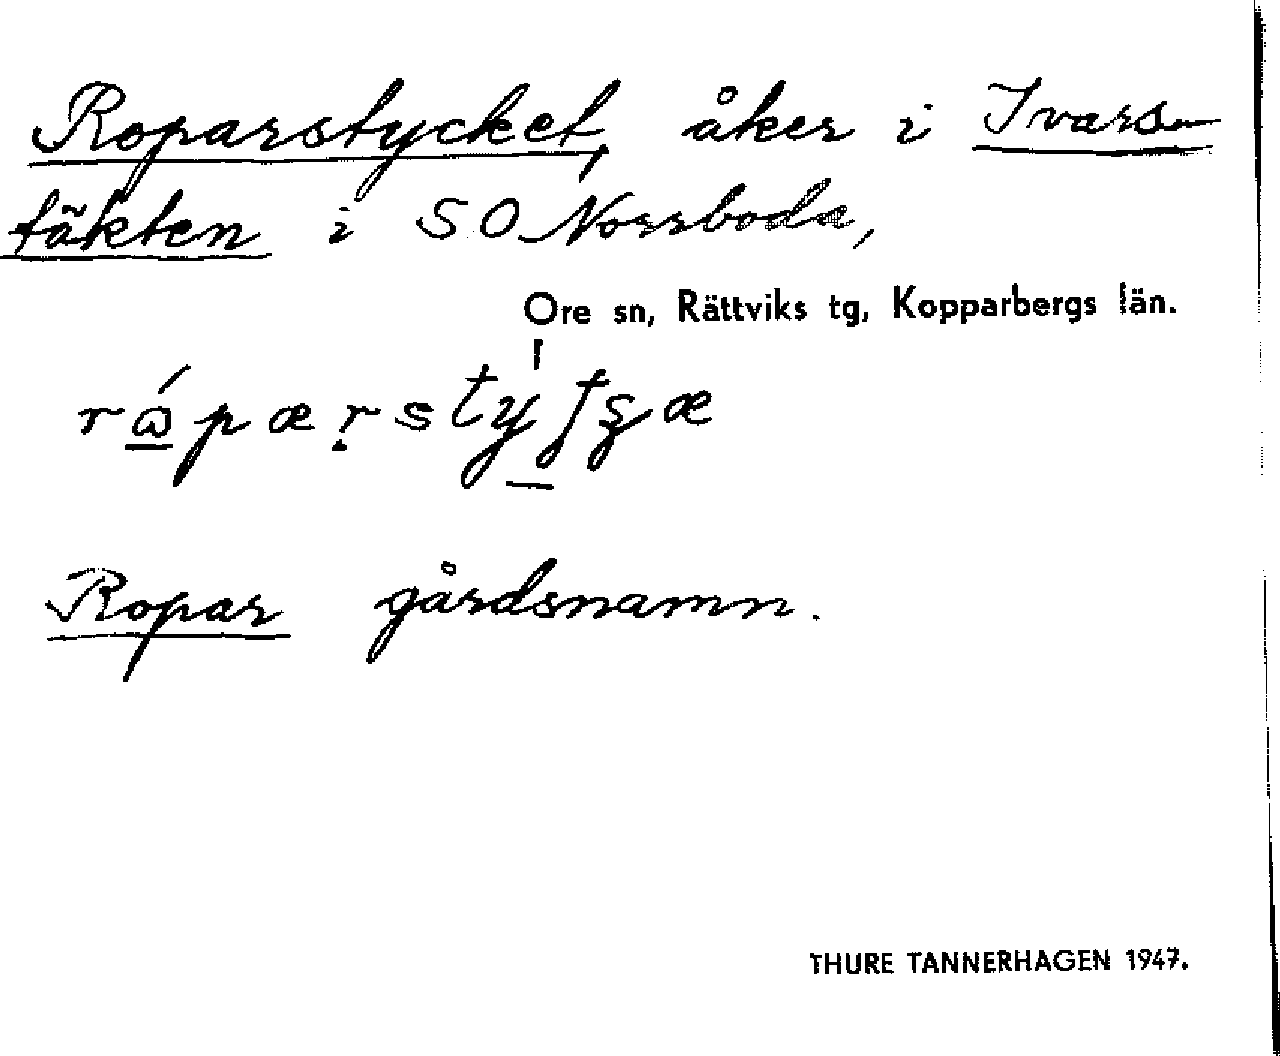 Roparstycket, åker i Ivars-
täkten i SO Norrboda,
Ore sn, Rättviks tg, Kopparbergs län.
Ropar gårdsnamn.
THURE TANNERHAGEN 1947.